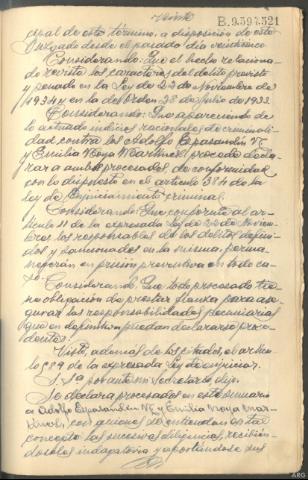 veinte
B.9.393.321
pual de este término, a disposición de este
Juzgado desde el pasado día veintinueve
Considerando: Que el hecho relaciona-
do reviste los caracteres del delito previsto
y penado en la Ley de 22 de Noviembre de
1934 y en la de Orden 28 de Julio de 1933.
Considerando: Que apareciendo de
lo actuado indicios racionales de criminali-
dad contra los Adolfo Espasandin
y Emilia Moya Martinez, procede decla-
rar a ambos procesados de conformidad
con lo dispuesto en el artículo 384 de la
Ley de Enjuiciamiento criminal.
Considerando: Que conforme al ar-
tículo 11 de la expresada Ley de 22 de Noviem-
bre, los responsables de los delitos defini-
dos y sancionados en la misma, perma-
necerán en prisión preventiva en todo ca-
so.
Considerando: Que todo procesado tie-
ne obligación de prestar fianza para ase-
gurar las responsabilidades pecuniarias
que en definitiva puedan declararse proce-
dentes.
Visto, además de los citados, el artícu-
lo 589 de la expresada Ley de enjuiciar.
S. Sª por ante mi Secretario, dijo:
Se declara procesados en este sumario
a Adolfo Espasandin y Emilia Moya Mar-
tinez, con quienes se entiendan en tal
concepto las sucesivas diligencias, recibién-
doseles indagatoria y aportándose sus
ARG